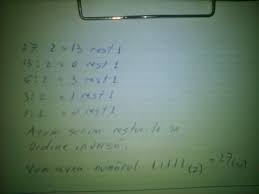 27:2=13 rest 1
13:2=6 rest 1
6:2=3 rest 1
3:2=1 rest 1
1:2=0 rest 1
Acum scriem resturile in
ordine inversa.
Vom avea numărul 11111(2) = 27(10)